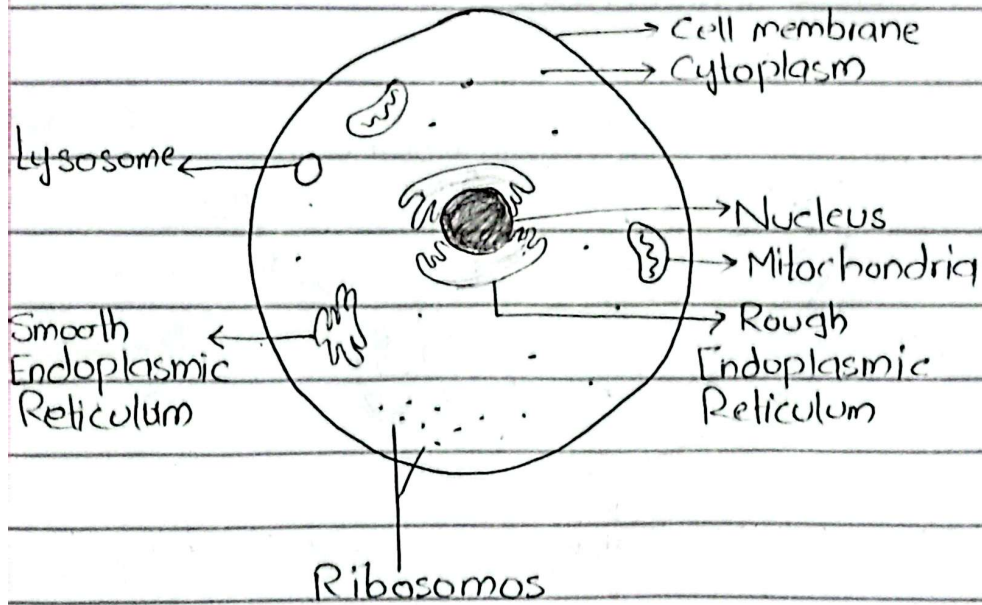 Cell membrane
Cytoplasm
Lysosome
Nucleus
Mitochondria
Smooth
Endoplasmic
Reticulum
Rough
Endoplasmic
Reticulum
Ribosomos